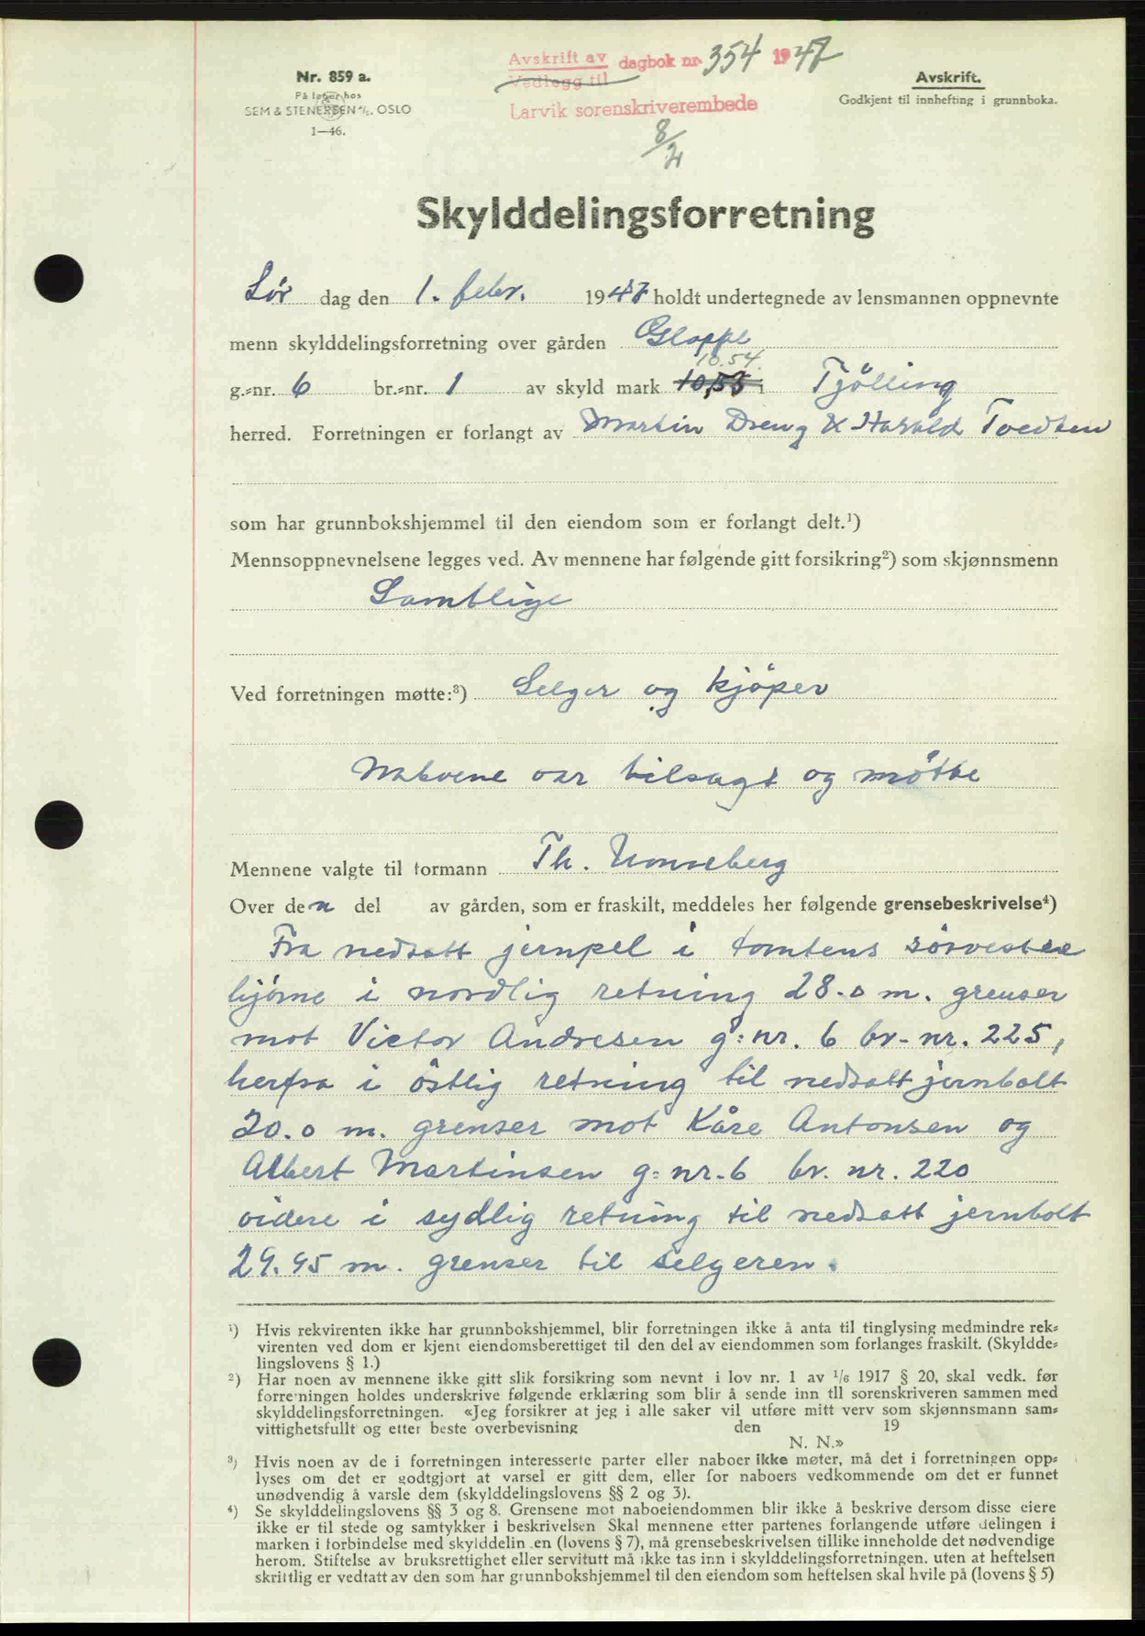 Nr. 859 a.
På lager hos
SEM & STENERSEN A/S. OSLO
1—46.
Avskrift av dagbok nr. 354 1947
Vedlegg til
Larvik sorenskriverembede
8/2
Avskrift.
Godkjent til innhefting i grunnboka.
Skylddelingsforretning
Lør dag den 1. febr. 1947 holdt undertegnede av lensmannen oppnevnte
menn skylddelingsforretning over gården Gloppe
10.54.
g.-nr. 6 br.-nr. 1 av skyld mark 10,53 i Tjölling
herred. Forretningen er forlangt av Martin Dreng & Harald Tvedten
som har grunnbokshjemmel til den eiendom som er forlangt delt.¹)
Mennsoppnevnelsene legges ved. Av mennene har følgende gitt forsikring²) som skjønnsmenn
Samtlige
Ved forretningen møtte:³) Selger og kjöper
Naboene var tilsagt og mötte
Mennene valgte til formann Th.
Over den del av gården, som er fraskilt, meddeles her følgende grensebeskrivelse⁴)
Fra nedsatt jernpel i tomtens sörvestre
hjörne i nordlig retning 28.0 m. grenser
mot Victor Andresen g:nr. 6 br-nr. 225,
herfra i östlig retning til nedsatt jernbolt
20.0 m. grenser mot Kåre Antonsen og
Albert Martinsen g:nr.6 br. nr. 220
videre i sydlig retning til nedsatt jernbolt
29.95 m. grenser til selgeren.
¹) Hvis rekvirenten ikke har grunnbokshjemmel, blir forretningen ikke å anta til tinglysing medmindre rek-
virenten ved dom er kjent eiendomsberettiget til den del av eiendommen som forlanges fraskilt. (Skyldde-
lingslovens § 1.)
²) Har noen av mennene ikke gitt slik forsikring som nevnt i lov nr. 1 av 1/6 1917 § 20, skal vedk. før
forretningen holdes underskrive følgende erklæring som blir å sende inn til sorenskriveren sammen med
skylddelingsforretningen. «Jeg forsikrer at jeg i alle saker vil utføre mitt verv som skjønnsmann sam-
vittighetsfullt og etter beste overbevisning den 19
N. N.»
³) Hvis noen av de i forretningen interesserte parter eller naboer ikke møter, må det i forretningen opp-
lyses om det er godtgjort at varsel er gitt dem, eller for naboers vedkommende om det er funnet
unødvendig å varsle dem (skylddelingslovens §§ 2 og 3).
⁴) Se skylddelingslovens §§ 3 og 8. Grensene mot naboeiendommen blir ikke å beskrive dersom disse eiere
ikke er til stede og samtykker i beskrivelsen Skal mennene etter partenes forlangende utføre delingen i
marken i forbindelse med skylddelin en (lovens § 7), må grensebeskrivelsen tillike inneholde det nødvendige
herom. Stiftelse av bruksrettighet eller servitutt må ikke tas inn i skylddelingsforretningen. uten at heftelsen
skriftlig er vedtatt av den som har grunnbokshjemmel til den eiendom som heftelsen skal hvile på (lovens § 5)